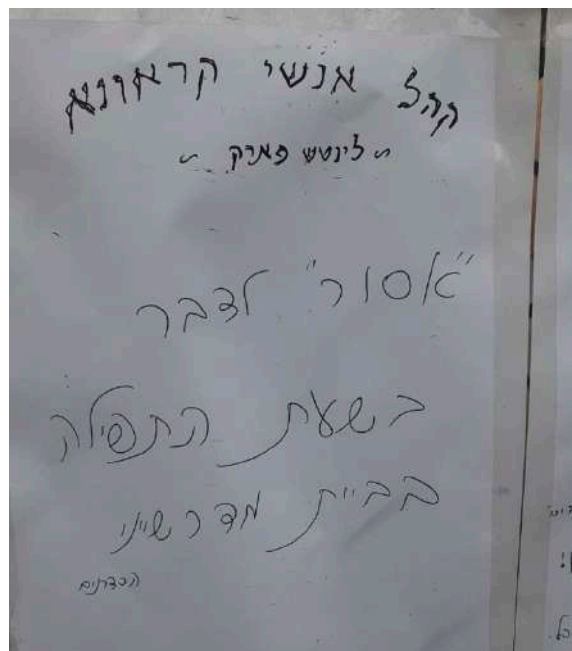 קהל אנשי קראונא
~ לינטש פארק ~
"אסור" לדבר
בשעת התפילה
בביית מדרשייני